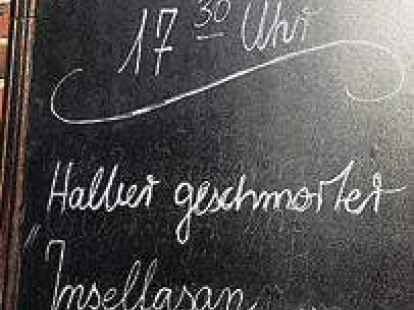 17 30 Uhr
Halber geschmorter
Inselfasan